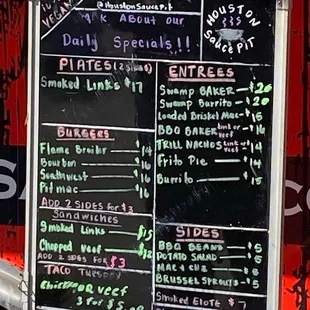 @HoustonSaucePit
VEGAN
ASK About our
Daily Specials!!
HOUSTON
Sauce PIT
PlATES (2 Sides)
Smoked Links $17
BURGERS
Flame Broiler $14
Bourbon $16
Southwest $16
Pit mac $16
ADD 2 SIDES for $3
Sandwiches
Smoked Links $15
Chopped Veef $12
ADD 2 SIDES FOR $3
TACO Tuesday
Chicken OR Veef
3 for $5.00
ENTREES
Swamp BAKER $20
Swamp Burrito $20
Loaded Brisket Mac $15
BBQ BAKER Link or Veef $16
TRILL NACHOS Link or Veef $14
Frito Pie $14
Burrito $15
SIDES
BBQ BEANS $5
POTATO SALAD $5
MAC + CHZ $5
BRUSSEL SPROUTS $5
Smoked Elote $7